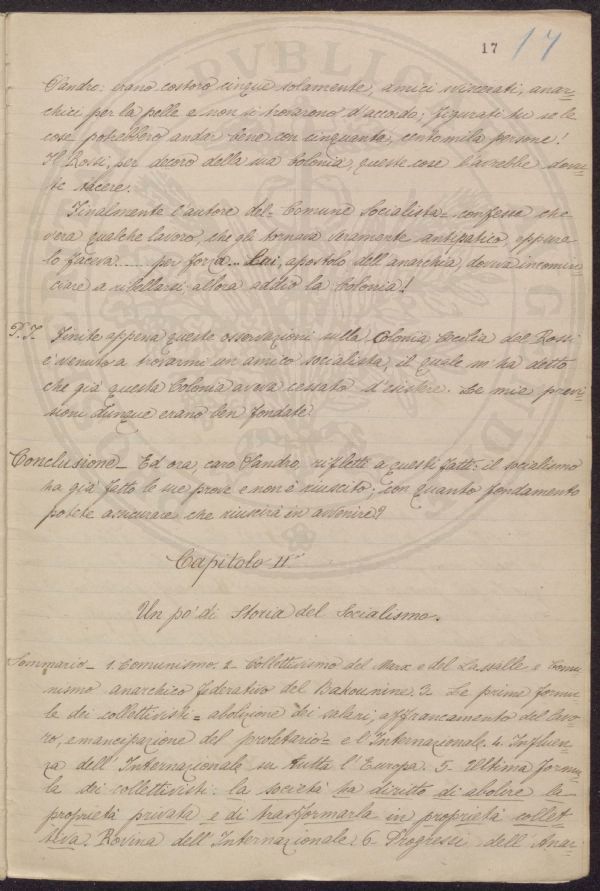 17 17
Sandro: erano costoro cinque solamente, amici sviscerati, anar-
chici per la pelle e non si trovarono d'accordo; figurati tu se le
cose potrebbero andar bene con cinquanta, centomila persone!
Il Rossi, per decoro della sua Colonia, queste cose l'avrebbe dovu-
te tacere.
Finalmente l'autore del = Comune Socialista = confessa che
v'era qualche lavoro, che gli tornava veramente antipatico, eppure
lo faceva .... per forza ... Lui, apostolo dell'anarchia, doveva incomin-
ciare a ribellarsi; allora addio la Colonia!
P.S. Finite appena queste osservazioni sulla Colonia Cecilia del Rossi
è venuto a trovarmi un amico socialista, il quale m'ha detto
che già questa Colonia aveva cessato d'esistere. Le mie previ-
sioni dunque erano ben fondate.
Conclusione _ Ed ora, caro Sandro, rifletti a questi fatti: il socialismo
ha già fatto le sue prove e non è riuscito; con quanto fondamento
potete assicurare che riuscirà in avvenire?
Capitolo II°
Un pò di Storia del Socialismo.
Sommario _ 1. Comunismo. 2. Collettivismo del Marx e del Lassalle e Comu-
nismo anarchico federativo del Bakounine. 3. Le prime formu-
le dei collettivisti = abolizione dei salari, affrancamento del lavo-
ro, emancipazione del proletario = e l'Internazionale. 4. Influen-
za dell'Internazionale su tutta l'Europa. 5. Ultima formu-
la dei collettivisti: la società ha diritto di abolire la
proprietà privata e di trasformarla in proprietà collet-
tiva. Rovina dell'Internazionale. 6. Progressi dell'Anar-